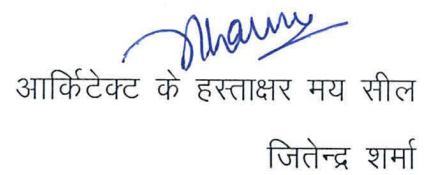 आर्किटेक्ट के हस्ताक्षर मय सील
जितेन्द्र शर्मा